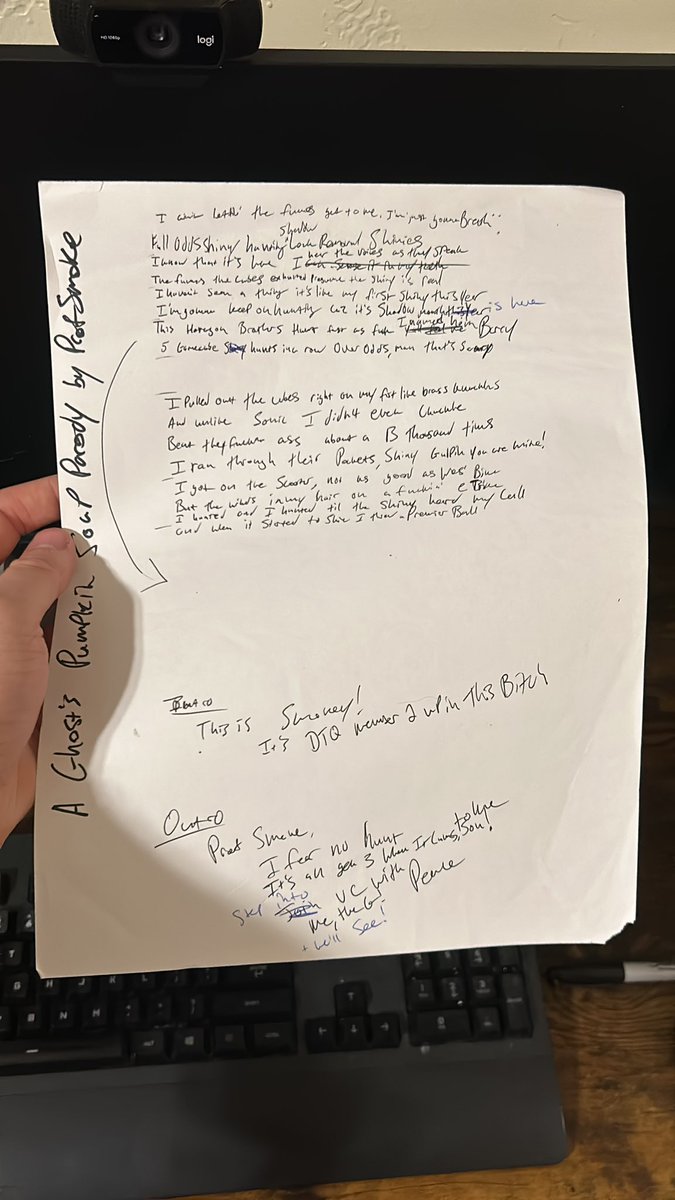 HD 1080p
logi
A Ghost's Pumpkin Soup Parody by Prof Smoke
I ain't lettin' the fumes get to me, I'm just gonna Breath
Full Odds Shiny hunting Shadow Lock Remond Shinies
I know that it's here I hear the voices as they speak
The fumes the cubes exhaured presume the shiny is real
I haven't seen a thing it's like my first shiny this year
I'm gonna keep on hunting cuz it's Shadow is here
This Brothers Hunt fast as fuck Berry
5 Gamecube hunts in a row Over Odds, man that's Scary
I Pulled out the cubes right on my fist like brass knuckles
And unlike Sonic I didn't even Chuckle
Beat they fucken ass about a B Thousand times
I ran through their Pockets, Shiny Gulpin you are mine!
I got on the Scooter, not as good as Wes' Bike
But the winds in my hair on a fuckin' e Bike
I hunted and I hunted til the Shiny heard my Call
and when it Started to Shine I throw a Premier Ball
Intro
This is Smokey!
It's DTQ member 2 up in This Bitch
Outro
Prof Smoke,
I fear no hunt
It's all gen 3 when It Comes to me, Son!
into VC with
me, the G, Peace
+ We'll See!